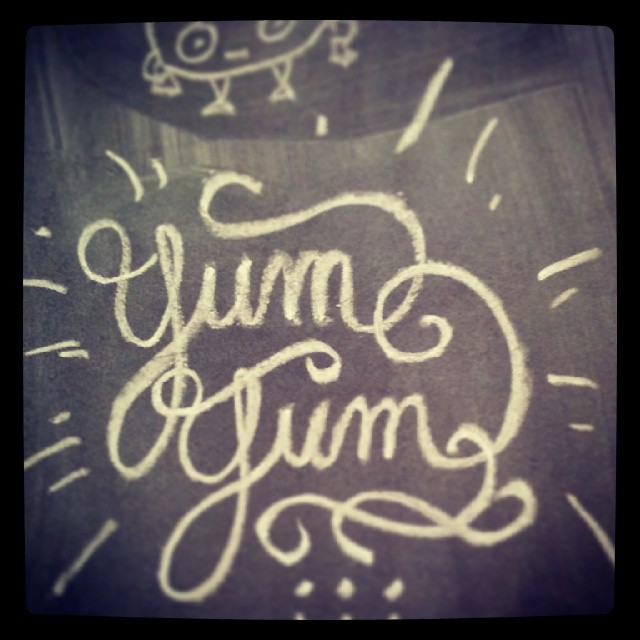 Yum
Yum